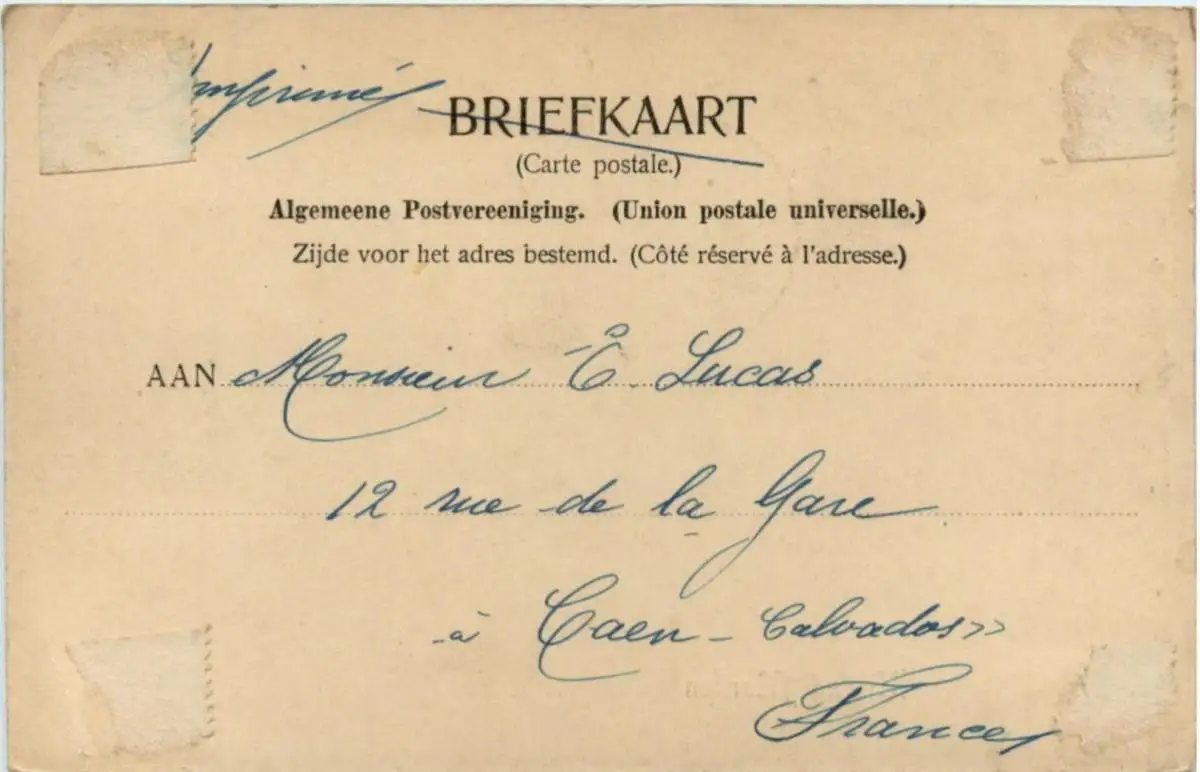 Imprimé
BRIEFKAART
(Carte postale.)
Algemeene Postvereeniging. (Union postale universelle.)
Zijde voor het adres bestemd. (Côté réservé à l'adresse.)
AAN Monsieur E. Lucas
12 rue de la Gare
à Caen - Calvados»
France